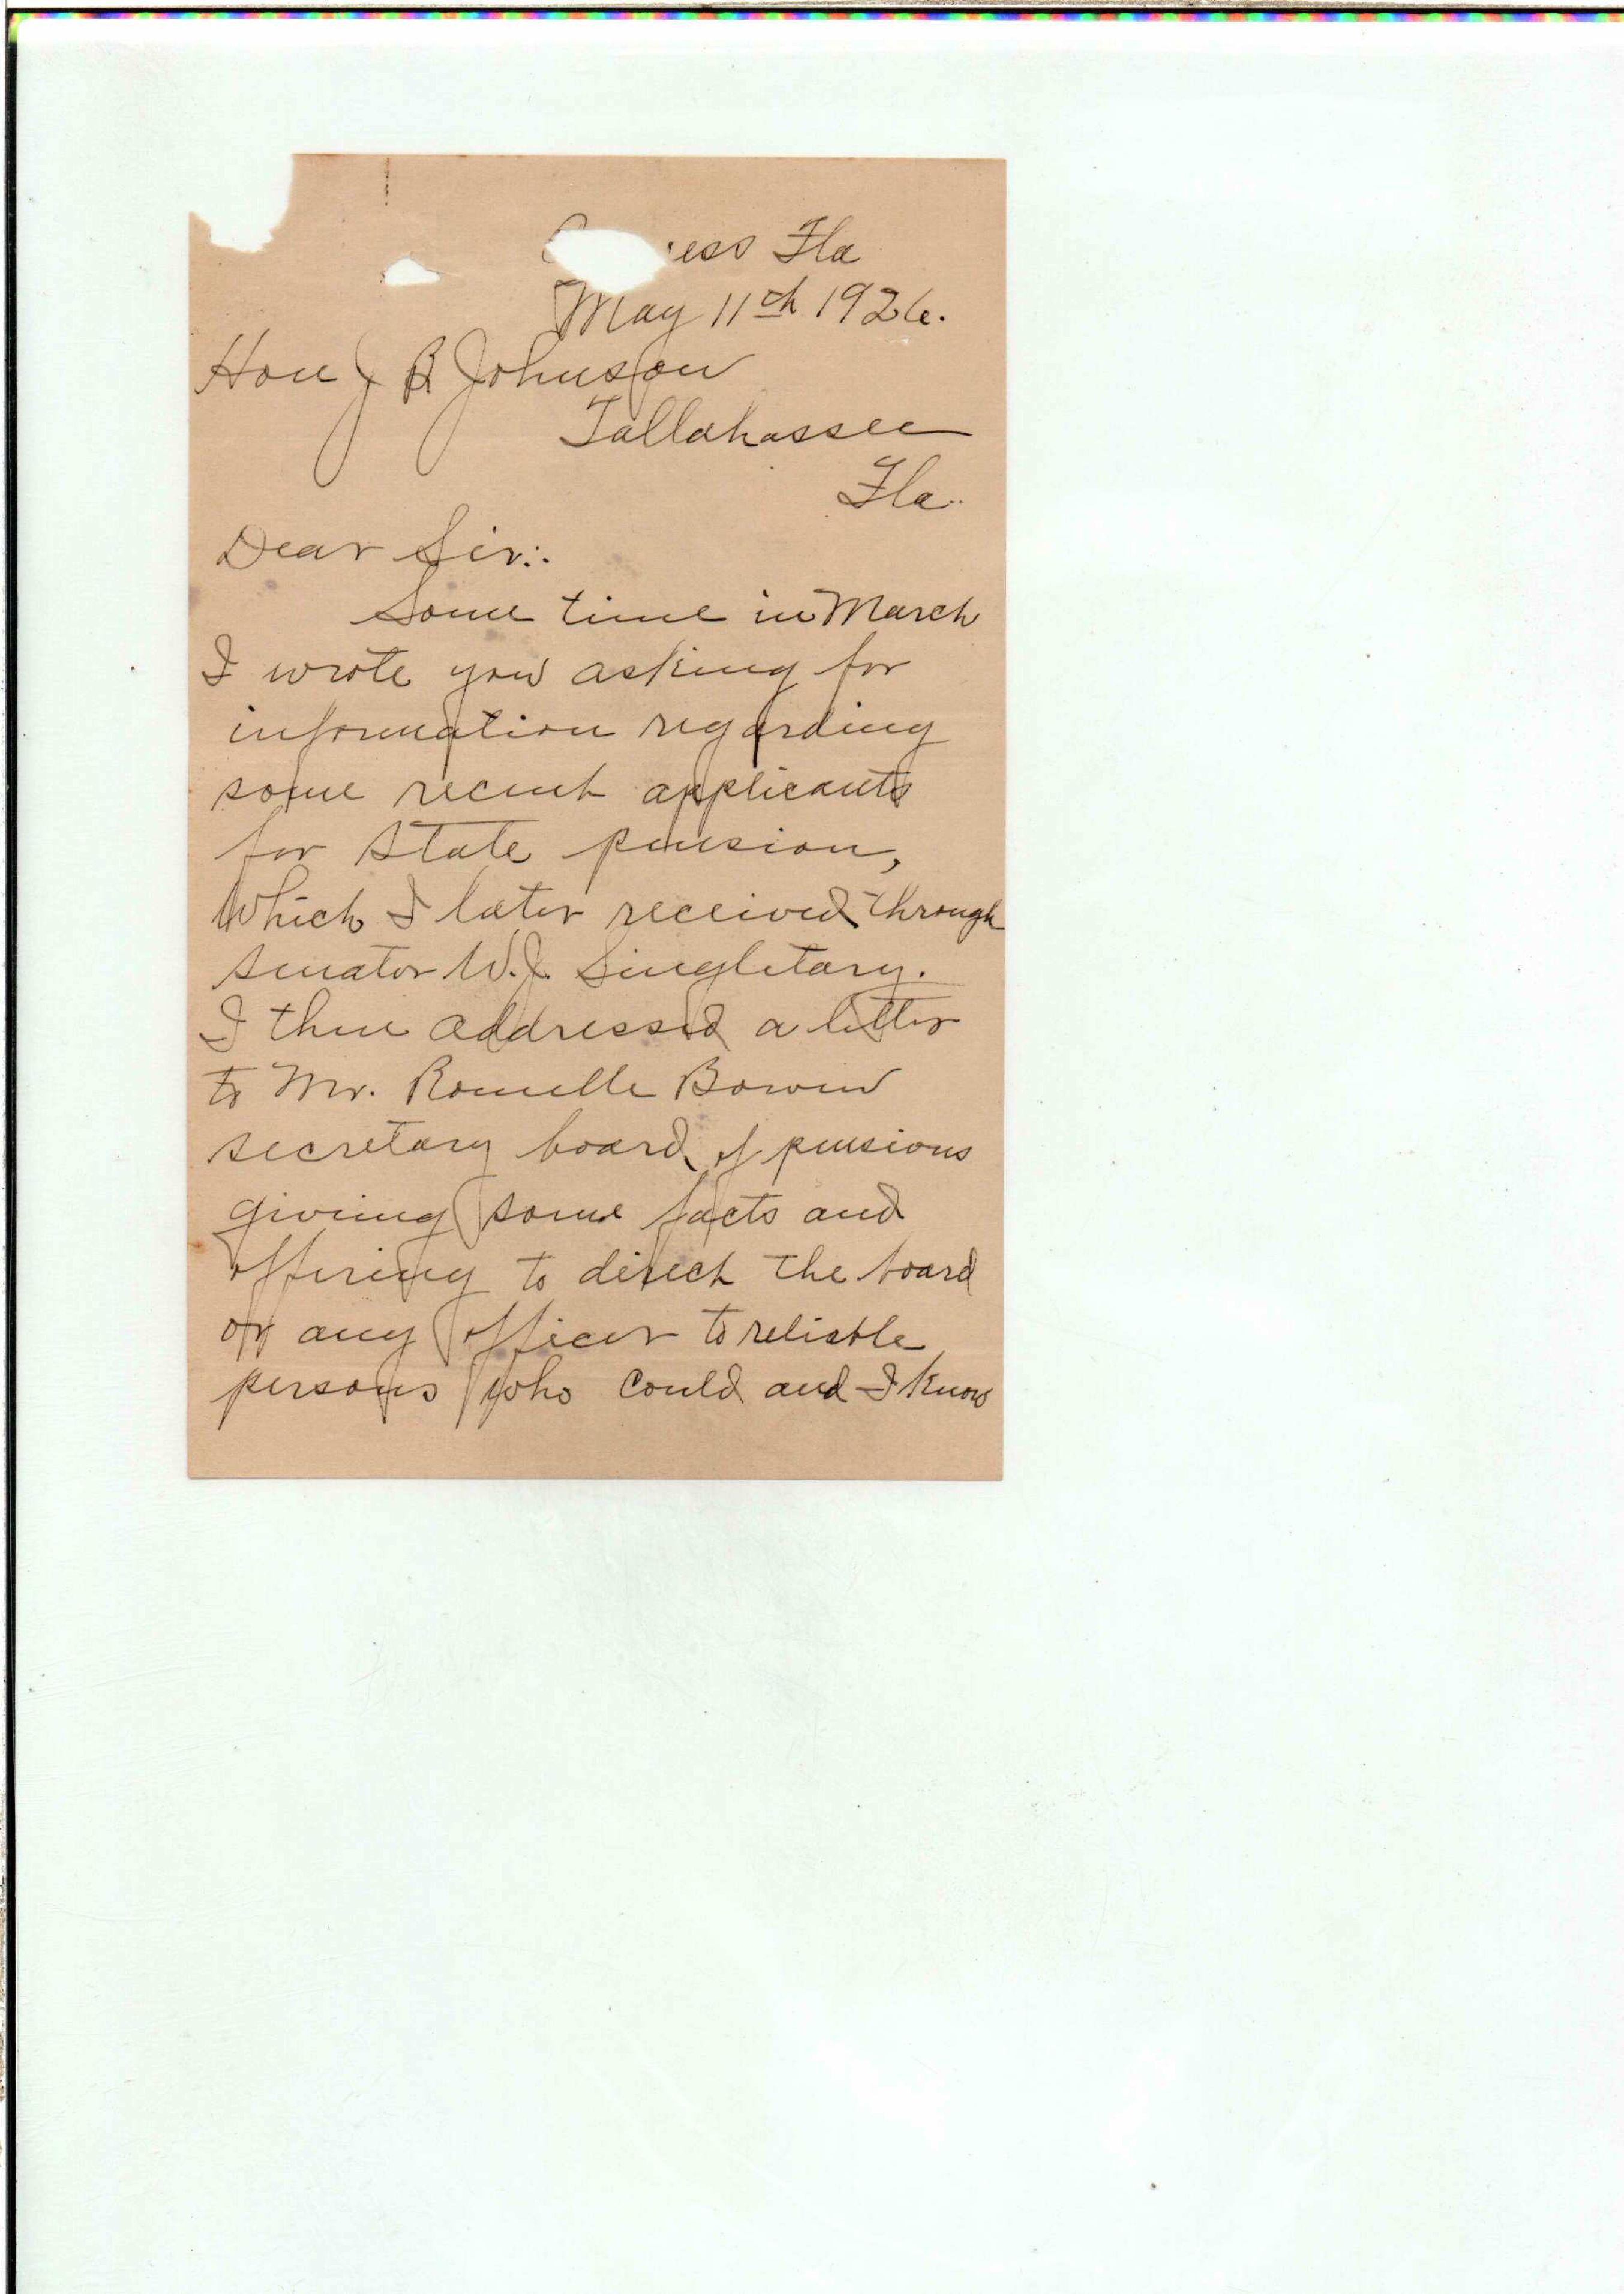 Fla
May 11th 1926.
Hon J B Johnson
Tallahassee
Fla.
Dear Sir:.
Some time in March
I wrote you asking for
information regarding
some recent applicants
for State pension,
Which I later received through
senator W.J. Singletary.
I then addressed a letter
to Mr. Romelle Bowen
secretary board of pensions
giving some facts and
offering to direct the board
or any officer to reliable
persons who could and I know